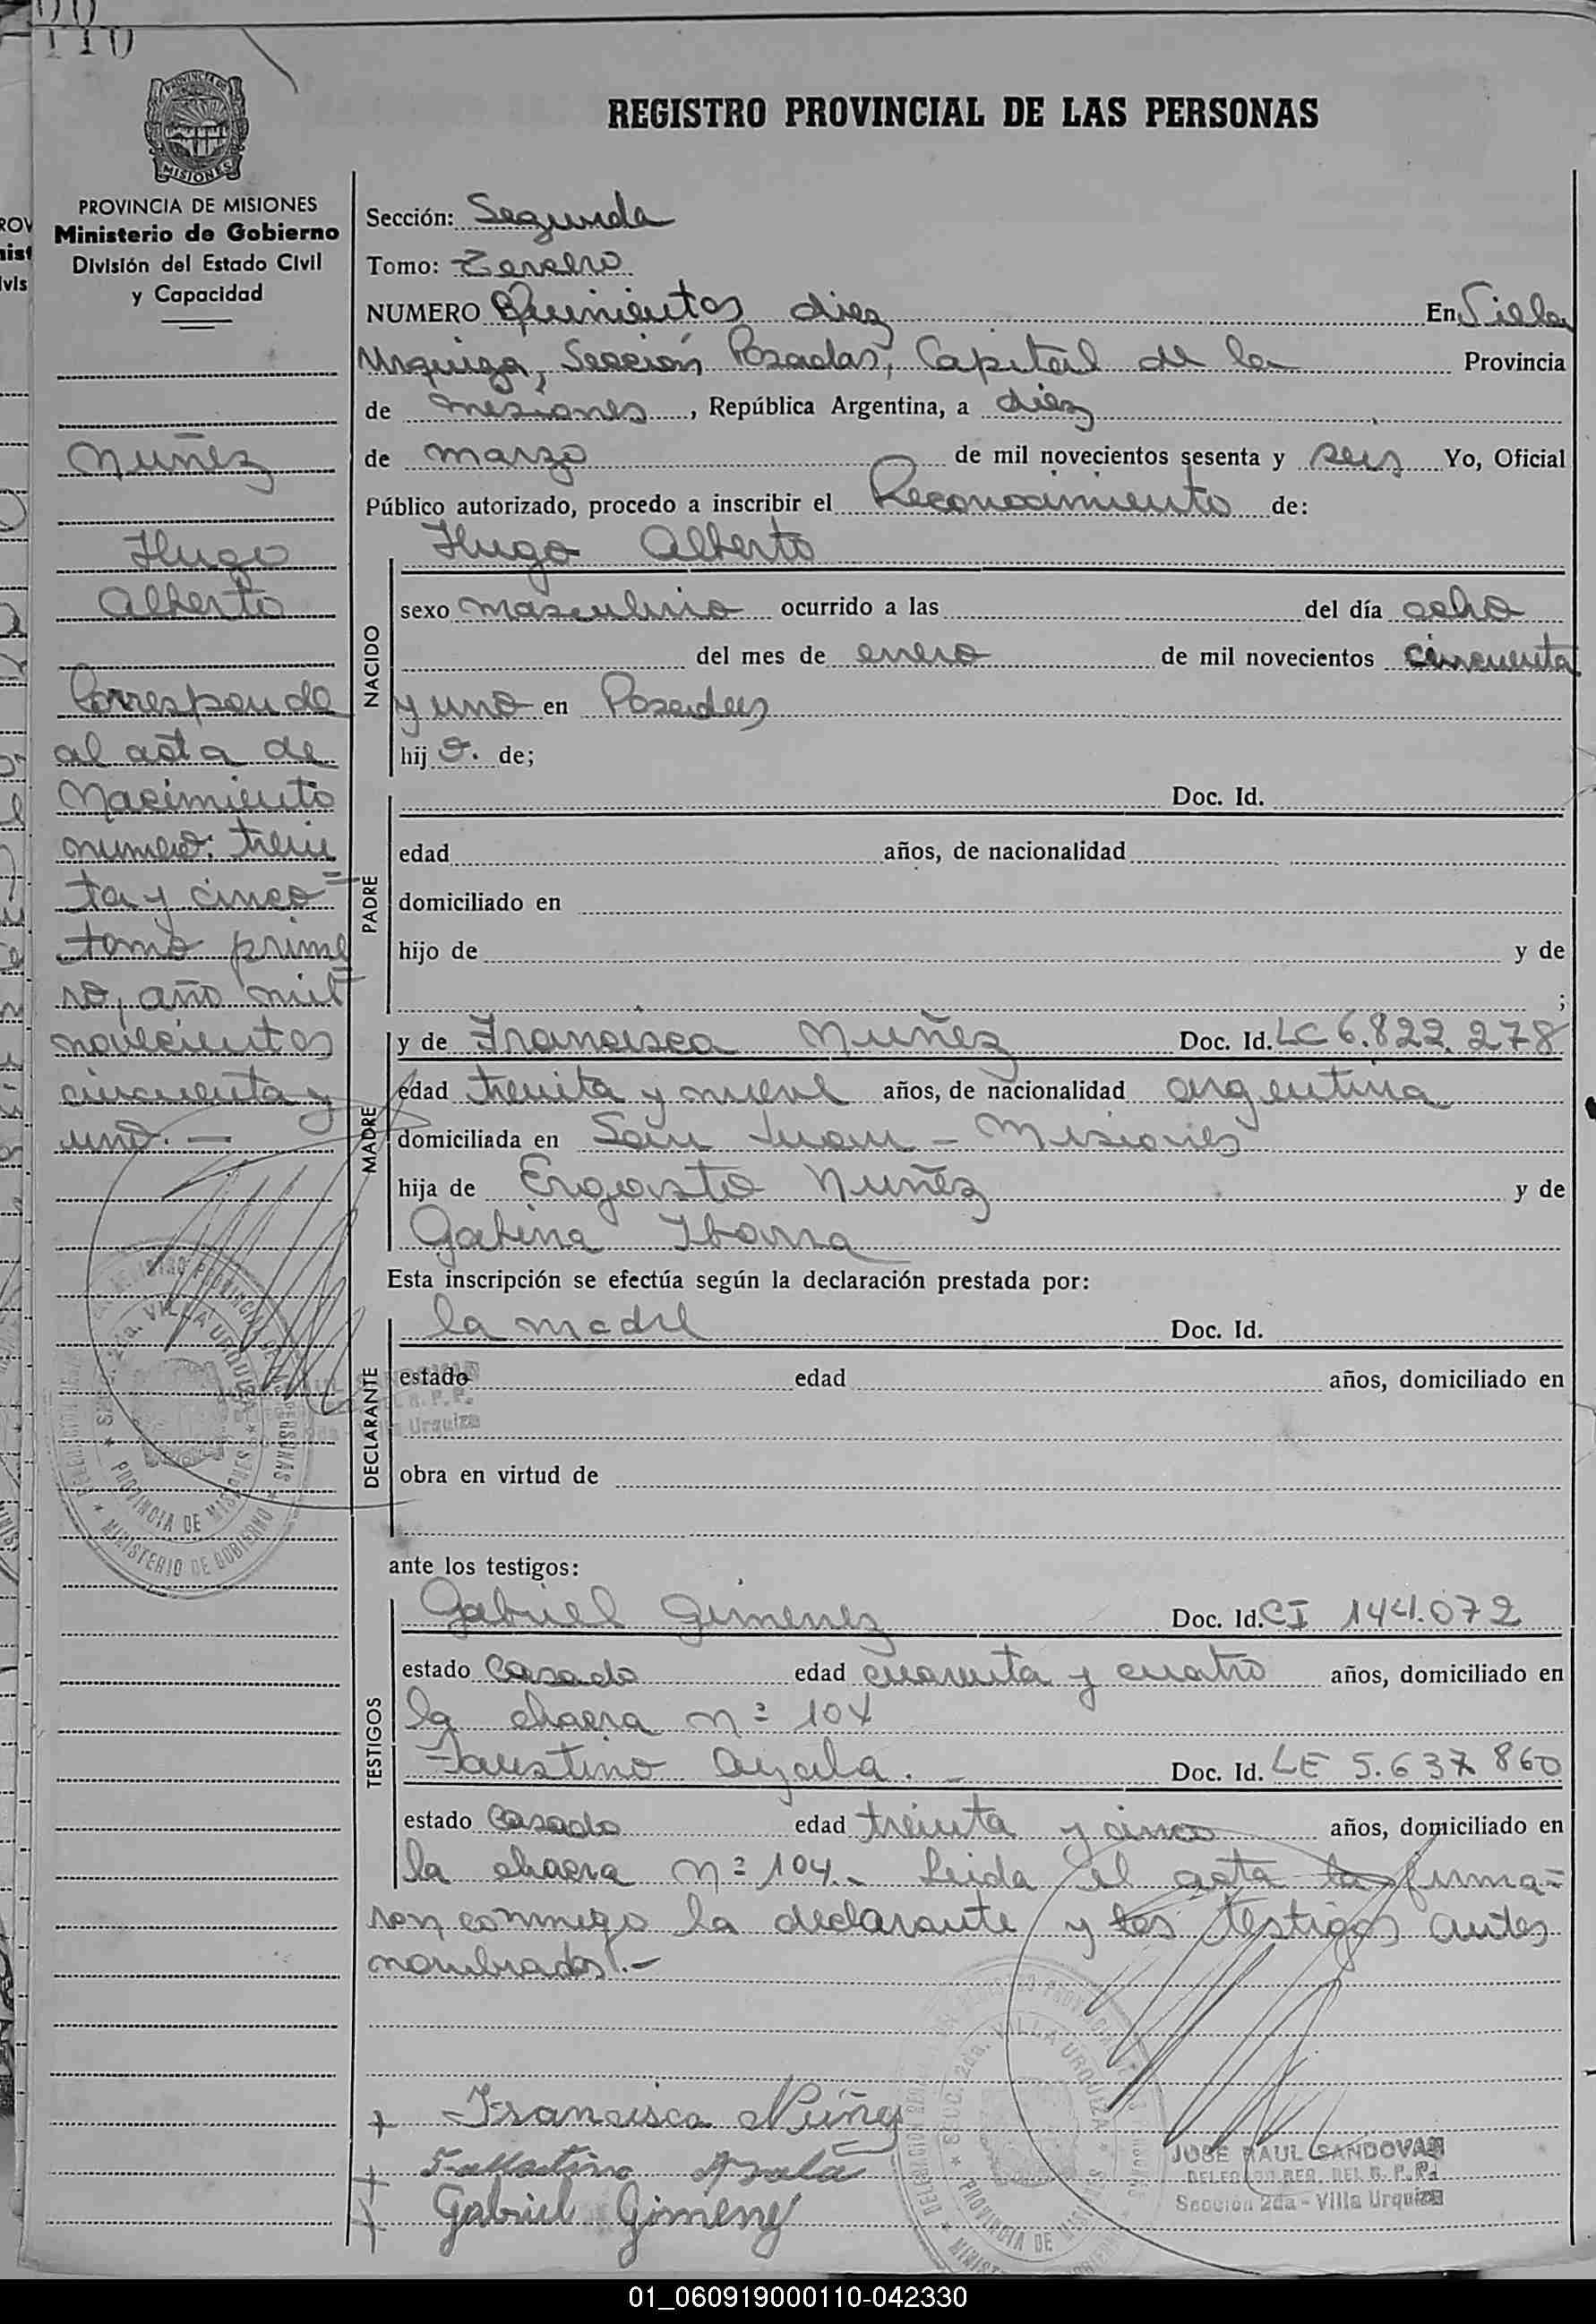 110
REGISTRO PROVINCIAL DE LAS PERSONAS
PROVINCIA DE MISIONES
Ministerio de Gobierno
División del Estado Civil
y Capacidad
Nuñez
Hugo
Alberto
Corresponde
al acta de
Nacimiento
numero: trein
ta y cinco =
tomo prime
ro, año mil =
novecientos
cincuenta y
uno. —
Sección: Segunda
Tomo: Tercero
NUMERO Quinientos diez En Villa
Urquiza, Sección Posadas, Capital de la Provincia
de Misiones, República Argentina, a diez
de marzo de mil novecientos sesenta y seis Yo, Oficial
Público autorizado, procedo a inscribir el Reconocimiento de:
Hugo Alberto
NACIDO
sexo masculino ocurrido a las del día ocho
del mes de enero de mil novecientos cincuenta
y uno en Posadas
hij o. de;
PADRE
Doc. Id.
edad años, de nacionalidad
domiciliado en
hijo de y de
;
MADRE
y de Francisca Nuñez Doc. Id. LC 6.822.278
edad treinta y nueve años, de nacionalidad argentina
domiciliada en San Juan - Misiones
hija de Ergasto Nuñez y de
Gabina Ibarra
Esta inscripción se efectúa según la declaración prestada por:
DECLARANTE
la madre Doc. Id.
estado edad años, domiciliado en
obra en virtud de
ante los testigos:
TESTIGOS
Gabriel Gimenez Doc. Id. CI 144.072
estado casado edad cuarenta y cuatro años, domiciliado en
la chacra nº 104
Faustino Ayala. — Doc. Id. LE 5.637.860
estado casado edad treinta y cinco años, domiciliado en
la chacra nº 104.- Leida el acta la firma=
ron conmigo la declarante y los testigos antes
nombrados.-
Francisca Núñez
Ayala
Gabriel Gimenez
JOSE RAUL SANDOVAL
DELEGADO REG. DEL R. P. P.
Sección 2da - Villa Urquiza
SECC. 2da. VILLA URQUIZA
PROVINCIA DE MISIONES
MINISTERIO DE GOBIERNO
01_060919000110-042330